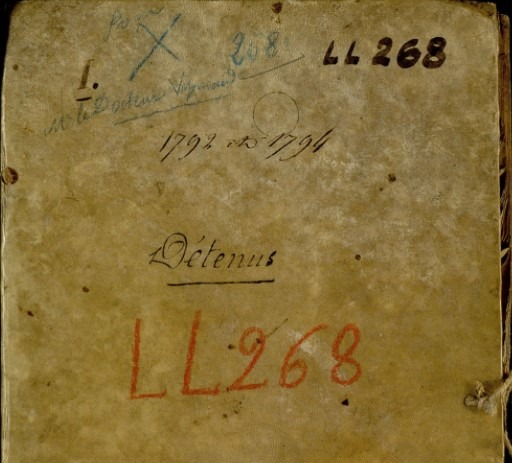 268
LL 268
I.
Mr le Docteur
1792 et 1794
Détenus
LL268